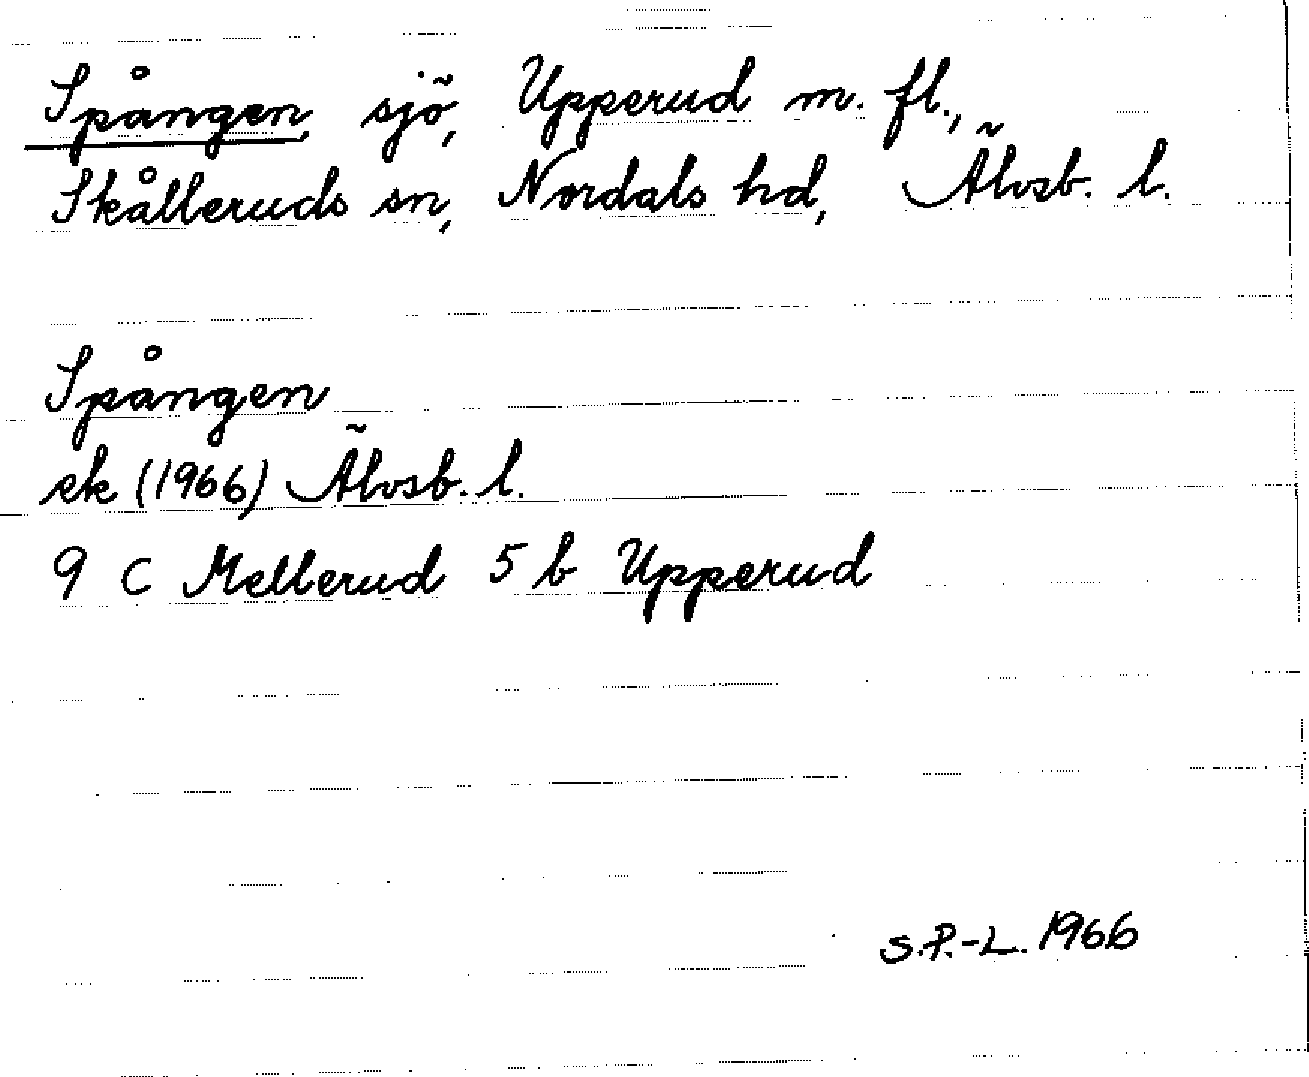 Spången, sjö, Upperud m. fl.,
Skålleruds sn, Nordals hd, Älvsb. l.
Spången
ek (1966) Älvsb. l.
9 C Mellerud 5 b Upperud
S.P.-L. 1966